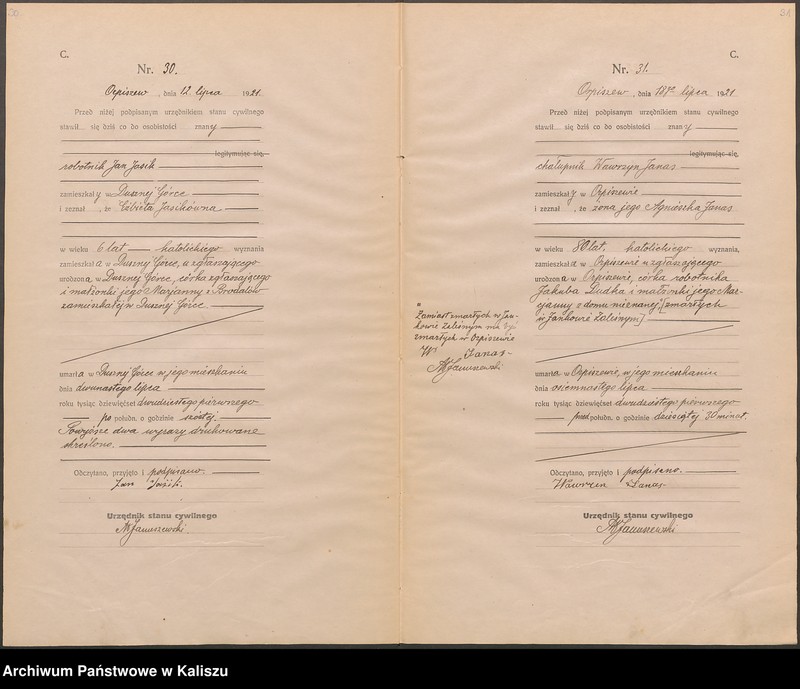 30.
C.
Nr. 30.
Orpiszew, dnia 12 lipca 1921
Przed niżej podpisanym urzędnikiem stanu cywilnego
stawił się dziś co do osobistości znany
legitymując się,
robotnik Jan Jasik
zamieszkały w Dusznej Górce
i zeznał, że Elżbieta Jasikówna
w wieku 6 lat katolickiego wyznania
zamieszkała w Dusznej Górce, u zgłaszającego
urodzona w Dusznej Górce, córka zgłaszającego
i małżonki jego Maryanny z Brodalów
zamieszkałej w Dusznej Górce
umarła w Dusznej Górce w jego mieszkaniu
dnia dwunastego lipca
roku tysiąc dziewięćset dwudziestego pierwszego
po połudn. o godzinie szóstej.
Powyższe dwa wyrazy drukowane
skreślono.
Odczytano, przyjęto i podpisano.
Jan Jasik.
Urzędnik stanu cywilnego
Januszewski.
31
C.
Nr. 31.
Orpiszew, dnia 18go lipca 1921
Przed niżej podpisanym urzędnikiem stanu cywilnego
stawił się dziś co do osobistości znany
legitymując się,
chałupnik Wawrzyn Janas
zamieszkały w Orpiszewie
i zeznał, że żona jego Agnieszka Janas
w wieku 80 lat. katolickiego wyznania,
zamieszkała w Orpiszewie u zgłaszającego
urodzona w Orpiszewie, córka robotnika
Jakuba Ludka i małżonki jego Mar-
cjanny z domu nieznanej, [zmarłych
w Jankowie Zaleśnym]
umarła w Orpiszewie, w jego mieszkaniu
dnia osiemnastego lipca
roku tysiąc dziewięćset dwudziestego pierwszego
przed połudn. o godzinie dziesiątej 30 minut.
Odczytano, przyjęto i podpisano.
Wawrzen Janas
Urzędnik stanu cywilnego
Januszewski
Zamiast zmarłych w Jan-
kowie Zaleśnym ma być
zmarłych w Orpiszewie
W. Janas
Januszewski
Archiwum Państwowe w Kaliszu